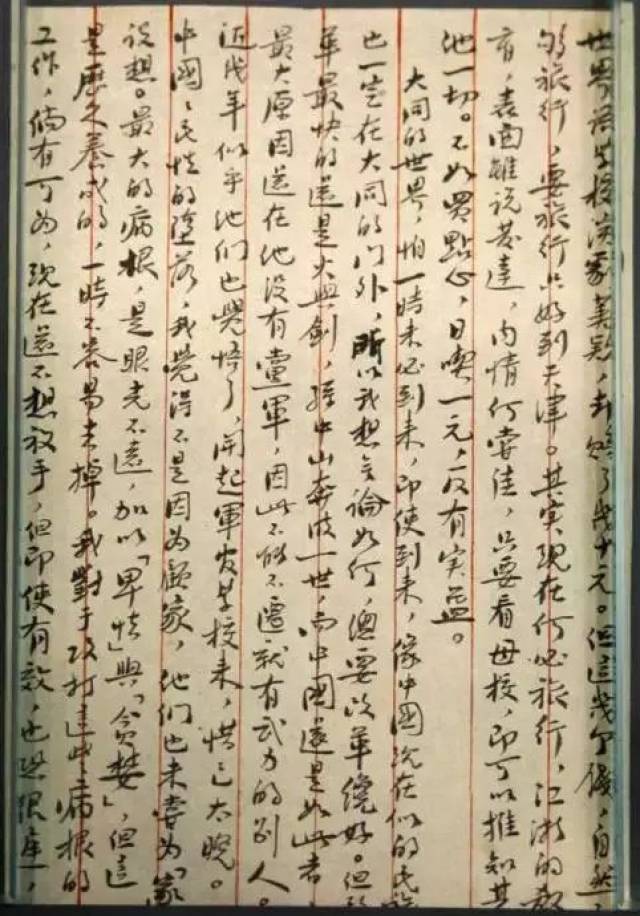 世界語学校演劇筹款,却賠了幾十元。但這幾个錢,自然
够旅行,要旅行只好到天津。其实現在何必旅行,江浙的教
育,表面雖说发達,内情何嘗佳,只要看母校,即可以推知其
他一切。不如買點心,日喫一元,反有实益。
大同的世界,怕一時未必到来,即使到来,像中國現在似的民族
也一定在大同的门外,所以我想無論如何,總要改革纔好。但改
革最快的還是火與劍,孫中山奔波一世,而中國還是如此者,
最大原因還在他没有黨軍,因此不能不遷就有武力的别人。
近幾年似乎他们也覺悟了,開起軍官学校来,惜已太晚。
中國々民性的堕落,我覺得不是因为顧家,他们也未嘗为「家
设想。最大的病根,是眼光不遠,加以「卑怯」與「貪婪」,但這
是歷久養成的,一時不容易去掉。我對于攻打這些病根的
工作,倘有可为,现在還不想放手,但即使有效,也恐很遲,